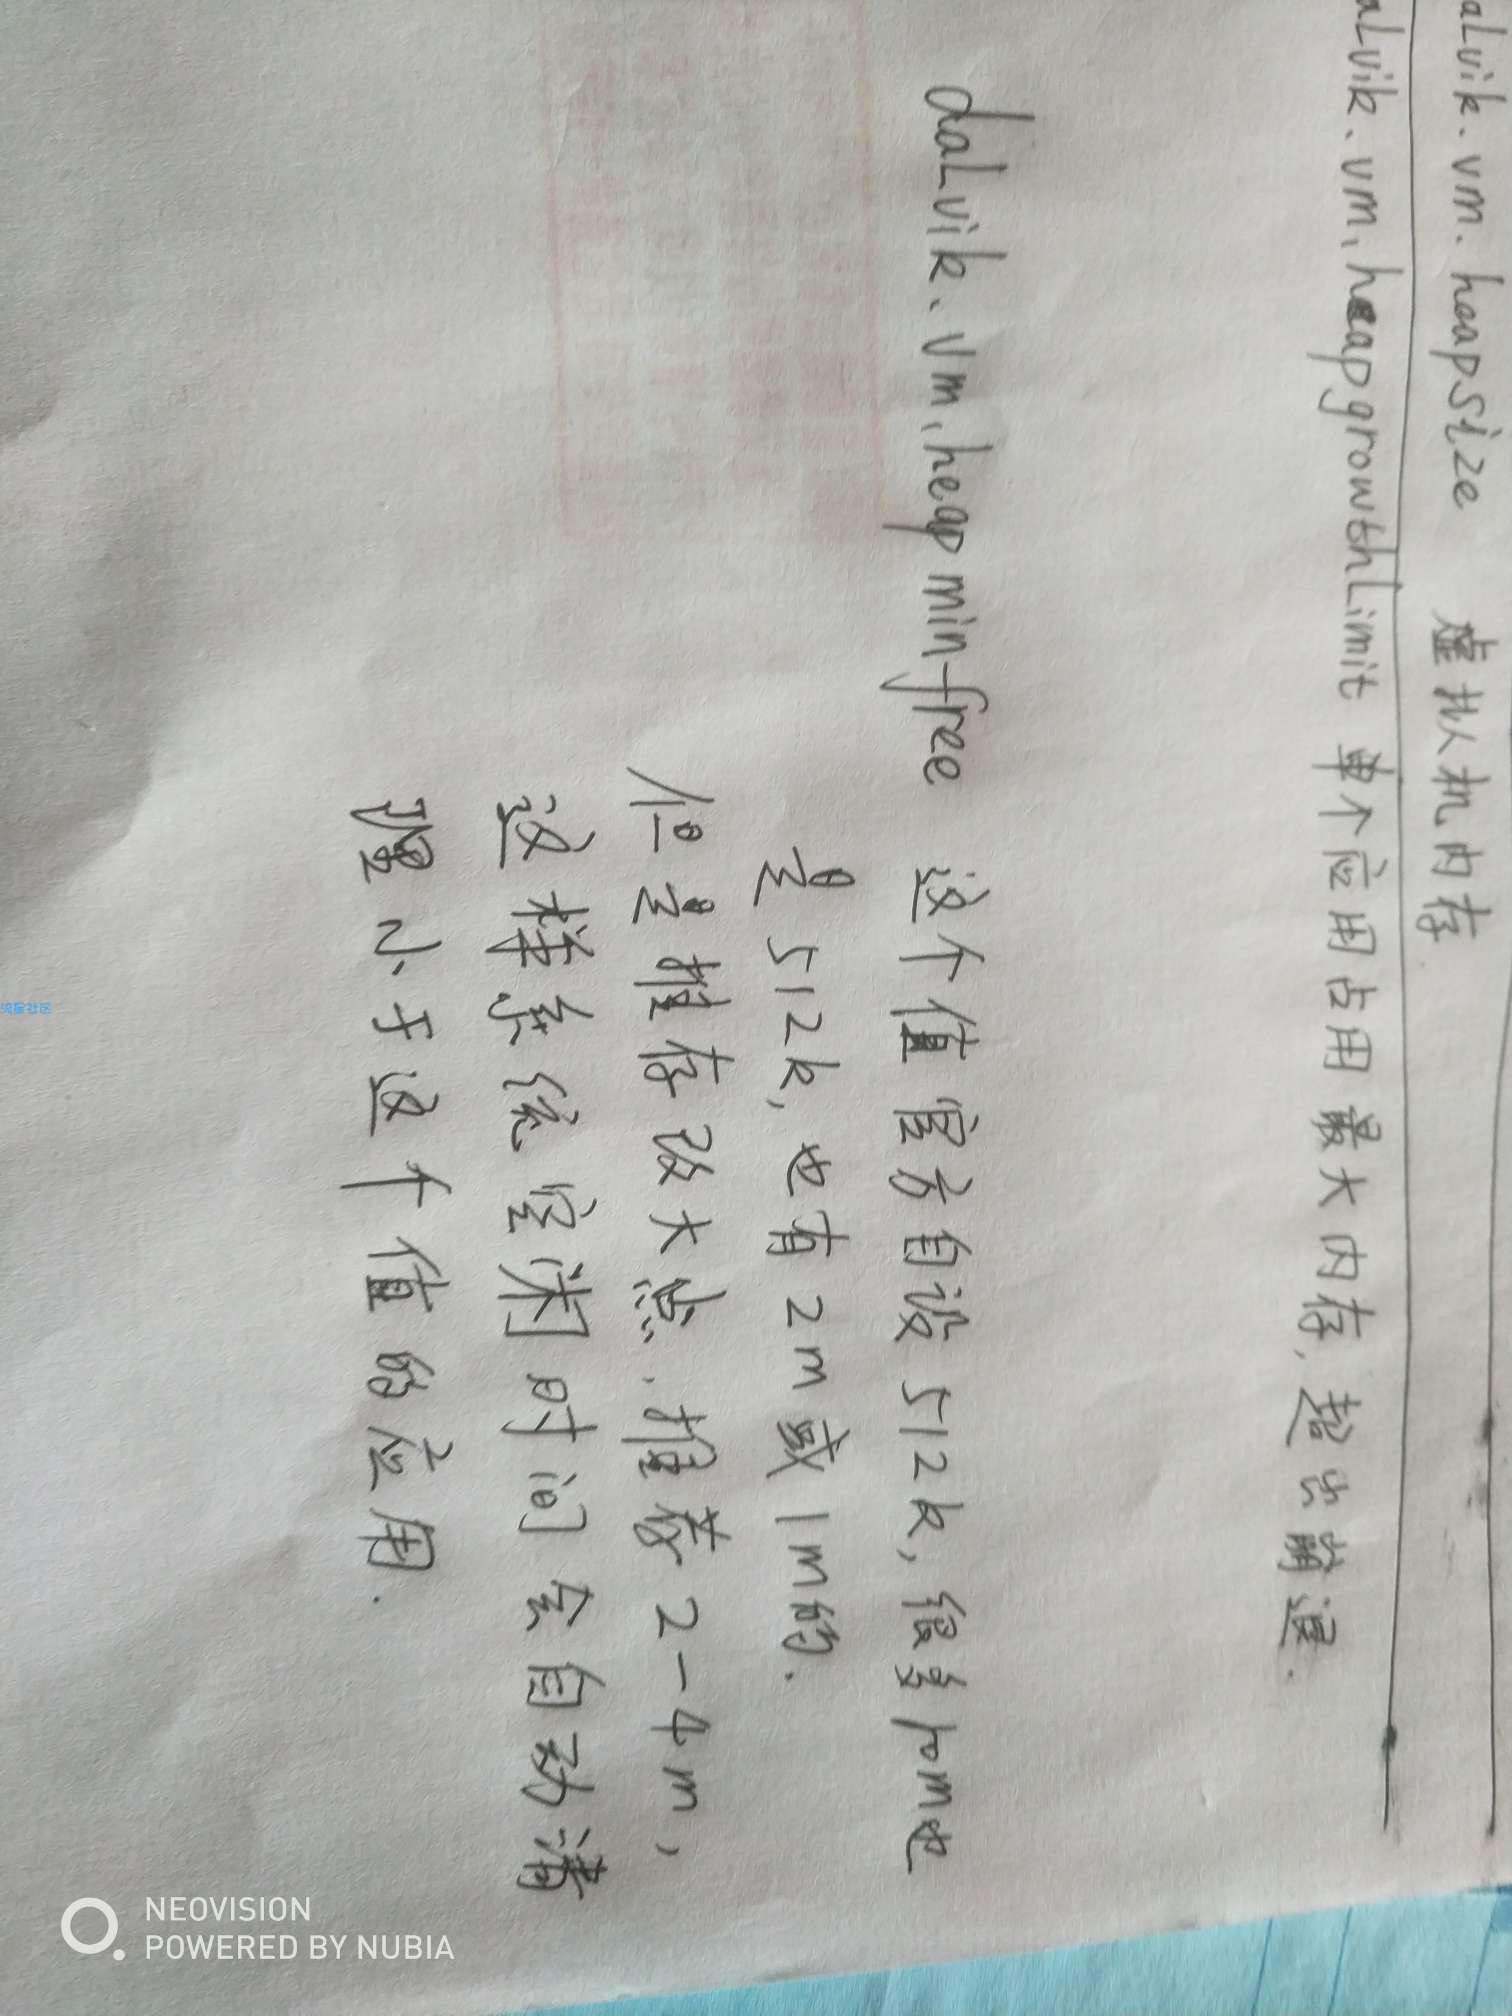 aLvik.vm.heapsize 虚拟机内存
aLvik.vm.heapgrowthLimit 单个应用占用最大内存,超出崩溃.
daLvik.vm.heapminfree 这个值官方自设512k,很多rom也
是512k,也有2m或1m的.
但是推存改大点.推荐2-4m,
这样系统空闲时间会自动清
理小于这个值的应用.
流星社区
NEOVISION
POWERED BY NUBIA